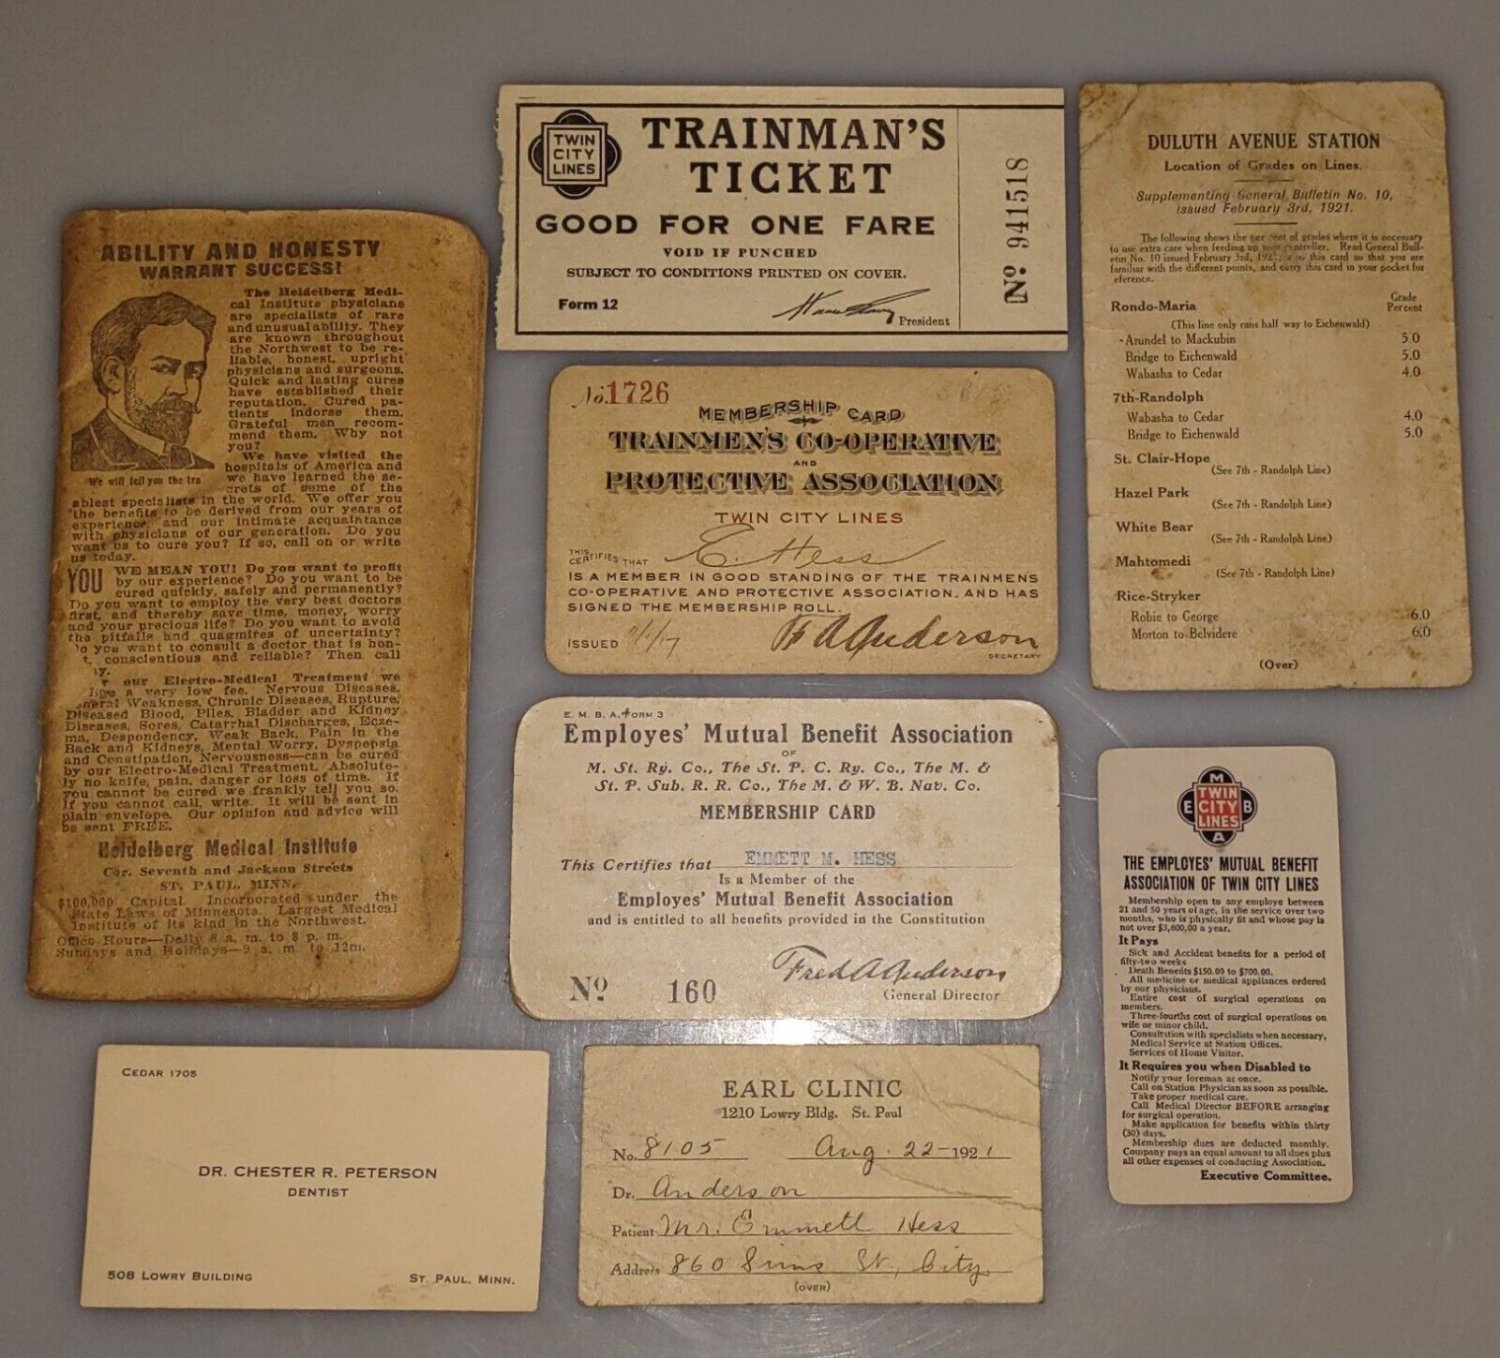 ABILITY AND HONESTY
WARRANT SUCCESS!
The Heidelberg Medi-
cal Institute physicians
are specialists of rare
and unusual ability. They
are known throughout
the Northwest to be re-
liable, honest, upright
physicians and surgeons.
Quick and lasting cures
have established their
reputation. Cured pa-
tients indorse them.
Grateful men recom-
mend them. Why not
you?
We have visited the
hospitals of America and
we have learned the se-
crets of some of the
We will tell you the tru
ablest specialists in the world. We offer you
the benefits to be derived from our years of
experience, and our intimate acquaintance
with physicians of our generation. Do you
want us to cure you? If so, call on or write
us today.
YOU WE MEAN YOU! Do you want to profit
by our experience? Do you want to be
cured quickly, safely and permanently?
Do you want to employ the very best doctors
first, and thereby save time, money, worry
and your precious life? Do you want to avoid
the pitfalls and quagmires of uncertainty?
o you want to consult a doctor that is hon-
t, conscientious and reliable? Then call
y.
our Electro-Medical Treatment we
a very low fee. Nervous Diseases,
neral Weakness, Chronic Diseases, Rupture,
Diseased Blood, Piles, Bladder and Kidney
Diseases, Sores, Catarrhal Discharges, Ecze-
ma, Despondency, Weak Back, Pain in the
Back and Kidneys, Mental Worry, Dyspepsia
and Constipation, Nervousness—can be cured
by our Electro-Medical Treatment. Absolute-
ly no knife, pain, danger or loss of time. If
you cannot be cured we frankly tell you so.
If you cannot call, write. It will be sent in
plain envelope. Our opinion and advice will
be sent FREE.
Heidelberg Medical Institute
Cor. Seventh and Jackson Streets
ST. PAUL, MINN.
$100,000 Capital. Incorporated under the
State Laws of Minnesota. Largest Medical
Institute of its kind in the Northwest.
Office Hours—Daily 8 a. m. to 8 p. m.
Sundays and Holidays—9 a. m. to 12m.
TWIN
CITY
LINES
TRAINMAN'S
TICKET
GOOD FOR ONE FARE
VOID IF PUNCHED
SUBJECT TO CONDITIONS PRINTED ON COVER.
Form 12
President
No. 941518
No. 1726
MEMBERSHIP CARD
TRAINMEN'S CO-OPERATIVE
AND
PROTECTIVE ASSOCIATION
TWIN CITY LINES
THIS CERTIFIES THAT E. Hess
IS A MEMBER IN GOOD STANDING OF THE TRAINMENS
CO-OPERATIVE AND PROTECTIVE ASSOCIATION. AND HAS
SIGNED THE MEMBERSHIP ROLL.
ISSUED
F A Anderson
SECRETARY
E. M. B. A. FORM 3
Employes' Mutual Benefit Association
OF
M. St. Ry. Co., The St. P. C. Ry. Co., The M. &
St. P. Sub. R. R. Co., The M. & W. B. Nav. Co.
MEMBERSHIP CARD
This Certifies that EMMETT M. HESS
Is a Member of the
Employes' Mutual Benefit Association
and is entitled to all benefits provided in the Constitution
Fred A Anderson
No 160
General Director
DULUTH AVENUE STATION
Location of Grades on Lines.
Supplementing General Bulletin No. 10,
issued February 3rd, 1921.
The following shows the per cent of grades where it is necessary
to use extra care when feeding up controller. Read General Bull-
etin No. 10 issued February 3rd, 1921, also this card so that you are
familiar with the different points, and carry this card in your pocket for
eference.
Grade
Per cent
Rondo-Maria
(This line only runs half way to Eichenwald)
Arundel to Mackubin 5.0
Bridge to Eichenwald 5.0
Wabasha to Cedar 4.0
7th-Randolph
Wabasha to Cedar 4.0
Bridge to Eichenwald 5.0
St. Clair-Hope
(See 7th - Randolph Line)
Hazel Park
(See 7th - Randolph Line)
White Bear
(See 7th - Randolph Line)
Mahtomedi
(See 7th - Randolph Line)
Rice-Stryker
Robie to George 6.0
Morton to Belvidere 6.0
(Over)
M
E TWIN CITY LINES B
A
THE EMPLOYES' MUTUAL BENEFIT
ASSOCIATION OF TWIN CITY LINES
Membership open to any employe between
21 and 50 years of age, in the service over two
months, who is physically fit and whose pay is
not over $3,600.00 a year.
It Pays
Sick and Accident benefits for a period of
fifty-two weeks
Death Benefits $150.00 to $700.00.
All medicine or medical appliances ordered
by our physicians.
Entire cost of surgical operations on
members.
Three-fourths cost of surgical operations on
wife or minor child.
Consultation with specialists when necessary,
Medical Service at Station Offices.
Services of Home Visitor.
It Requires you when Disabled to
Notify your foreman at once.
Call on Station Physician as soon as possible.
Take proper medical care.
Call Medical Director BEFORE arranging
for surgical operation.
Make application for benefits within thirty
(30) days.
Membership dues are deducted monthly.
Company pays an equal amount to all dues plus
all other expenses of conducting Association.
Executive Committee.
CEDAR 1705
DR. CHESTER R. PETERSON
DENTIST
508 LOWRY BUILDING
ST. PAUL, MINN.
EARL CLINIC
1210 Lowry Bldg. St. Paul
No. 8105 Aug. 22-1921
Dr. Anderson
Patient Mr. Emmett Hess
Address 860 Sims St, City
(OVER)